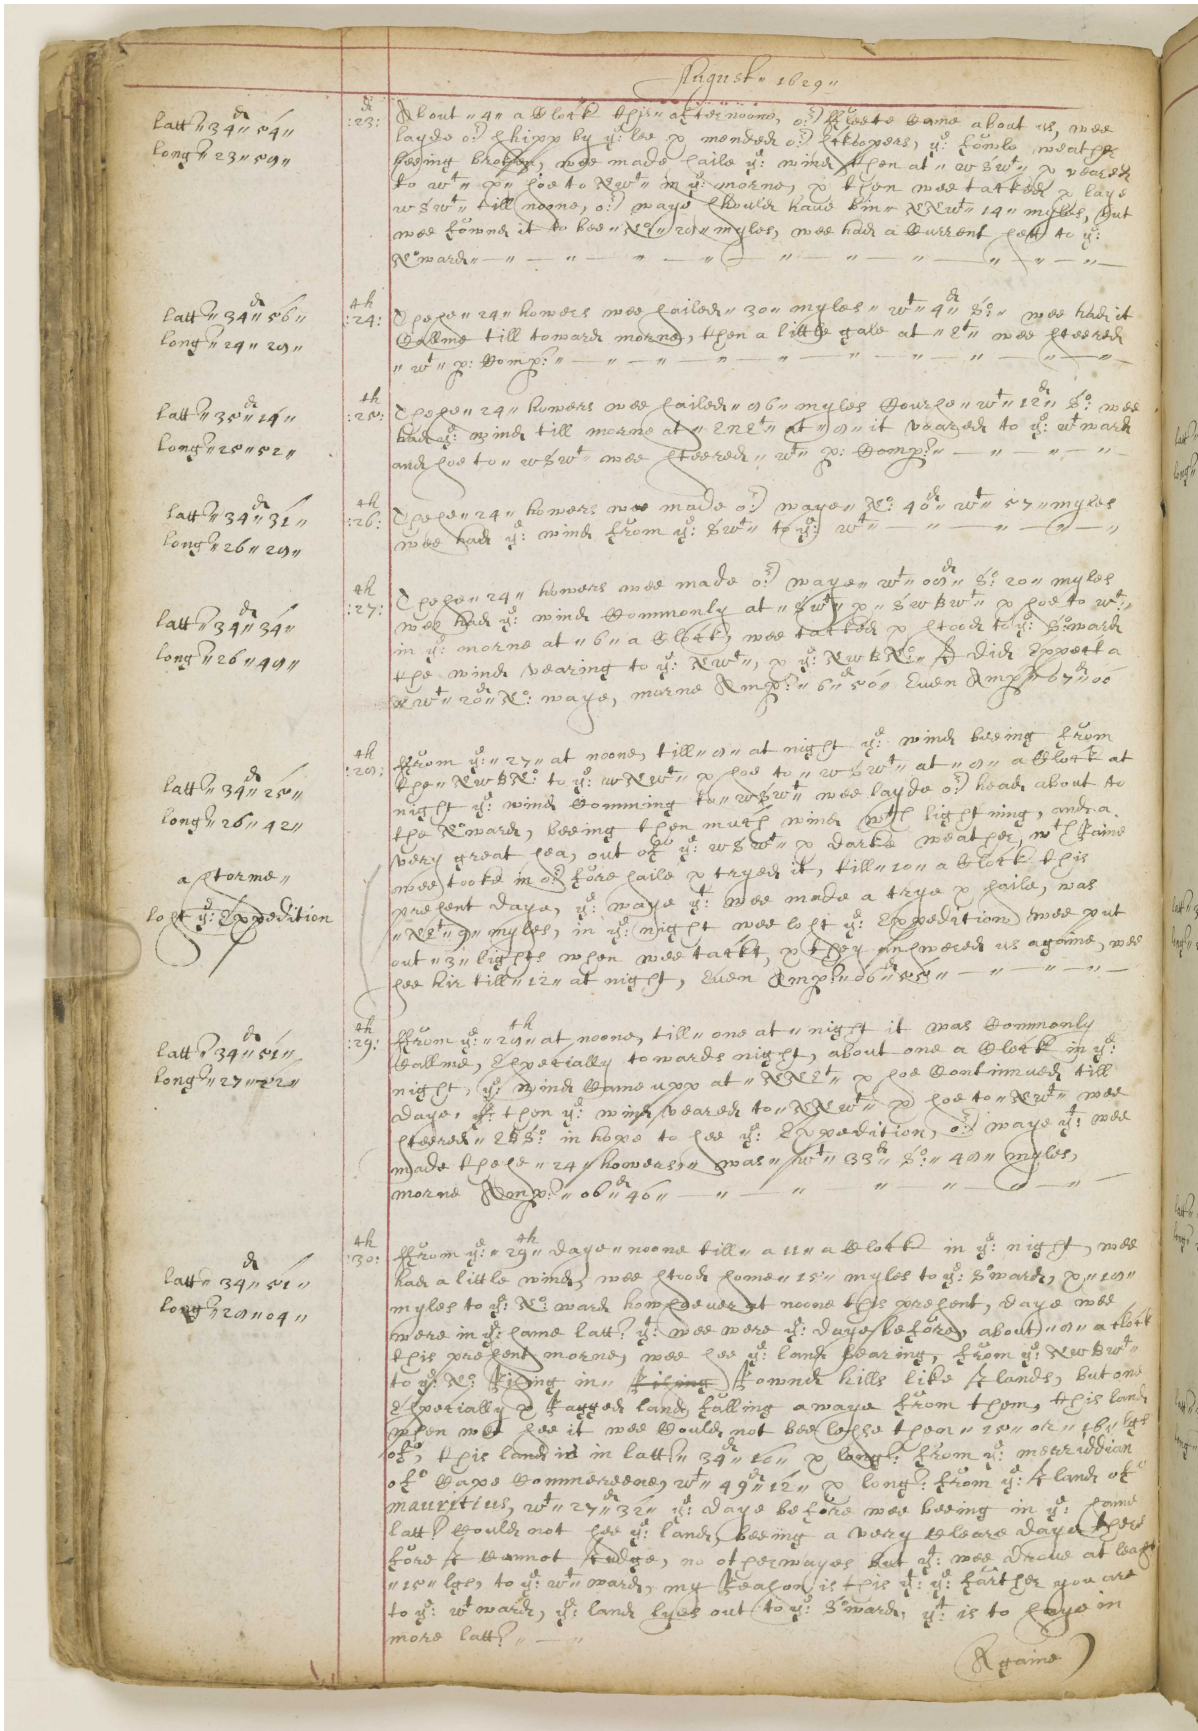 August " 1629 "
latt: 34 d " 54 "
long: 23 " 59 "
:23: d
About " 4 " a Clock this afternoone, or: ffleete Came about us, wee
layde or: Shipp by ye: lee & mended or: , ye: fowle weather
beeing broken, wee made saile ye: wind then at " WSWt " & veared
to Wt " & " soe to NWt " in ye: morne, & then wee tacked & laye
WSWt " till noone, or: waye should have bin " NNWt " 14 " myles, but
wee fownd it to bee " No " 29 " myles, wee had a Current sett to ye:
Noward "
latt: 34 d " 56 "
long: 24 " 29 "
th :24:
These " 24 " howers wee sailed " 30 " myles " Wt " 4 d " So: " wee had it
Callme till toward morne, then a little gale at " Et " wee steered
" Wt " p: Comp: "
latt: 35 d " 14 "
long: 25 " 52 "
th :25:
These " 24 " howers wee sailed " 96 " myles Course " Wt " 12 d " So: wee
had ye: wind till morne at " ENEt " at " 9 " it veared to ye: Wtward
and soe to " WSWt " wee steered " Wt " p: Comp: "
latt: 34 d " 31 "
long: 26 " 29 "
th :26:
These " 24 " howers wee made or: waye " No: 40 d " Wt " 57 " myles
wee had ye: wind from ye: SWt " to ye: Wt "
latt: 34 d " 34 "
long: 26 " 49 "
th :27:
These " 24 " howers wee made or: waye " Wt " 09 d " So: 20 " myles
wee had ye: wind Commonly at " SWt " & " SWBWt " & soe to Wt: "
in ye: morne at " 6 " a Clock, wee tacked & stood to ye: Soward
the wind vearing to ye: NWt ", & ye: NWBNo: " I did Expect a
NWt " 20 d " No: waye, morne Amp: " 6 d " 50 " Even Amp: " 07 d " 00
latt: 34 d " 25 "
long: 26 " 42 "
a storme "
lost ye: Expedition
th :29:
ffrom ye: " 27 " at noone, till " 9 " at night ye: wind beeing from
the " NWBNo: to ye: WNWt " & soe to " WSWt " at " 9 " a Clock at
night ye: wind Comming to " WSWt " wee layde or: head about to
the Noward, beeing then much wind wth lightning, and a
very great sea, out of ye: WSWt " & darke weather, wth Raine
wee tooke in or: fore saile & tryed it, till " 10 " a Clock this
present daye, ye: waye yt: wee made a trye & saile, was
" NEt " 9 " myles, in ye: night wee lost ye: Expedition wee put
out " 3 " lights when wee tackt, & they answered us againe, wee
see hir till " 12 " at night, Even Amp: " 06 d " 55 "
latt: 34 d " 51 "
long: 27 " 22 "
th :29:
ffrom ye: " 29 th " at noone, till " one at " night it was Commonly
Callme, Especially towards night, about one a Clock in ye:
night, ye: wind Came upp at " NNEt " & soe Continued till
daye, & then ye: wind veared to " NNWt " & soe to " NWt " wee
steered " EBSo: in hope to see ye: Expedition, or: waye yt: wee
made these " 24 " howers, " was " Wt " 33 d " So: " 49 " myles,
morne Amp: " 06 d " 46 "
latt: 34 d " 51 "
long: 29 " 04 "
th :30:
ffrom ye: " 29 th " daye " noone till " a 11 " a Clock in ye: night, wee
had a little wind, wee stood some " 15 " myles to ye: Soward, & " 19 "
myles to ye: No: ward howsoever at noone this present, daye wee
were in ye: same latt: yt: wee were ye: daye before, about " 9 " a Clock
this present morne, wee see ye: land bearing, from ye: NWBWt "
to ye: No: Rising in " Rising Rownd hills like Ilands, but one
Especially & Ragged land, falling awaye from them, this land
when wee see it wee Could not bee lesse then " 15 " or " 16 " lgs
of, this land is in latt: " 34 d " 10 " & long: from ye: merriddian
of Cape Commereene, Wt " 49 d " 12 " & long: from ye: Iland of
mauritius, Wt " 27 d " 32 " ye: daye before wee beeing in ye: same
latt: Could not see ye: land, beeing a very Cleare daye there
fore I Cannot Judge, no otherwayes but yt: wee drave at least
" 15 " lgs, to ye: Wtward, my Reason is this yt: ye: farther you are
to ye: Wtward, ye: land lyes out to ye: Soward, yt: is to saye in
more latt: "
Againe